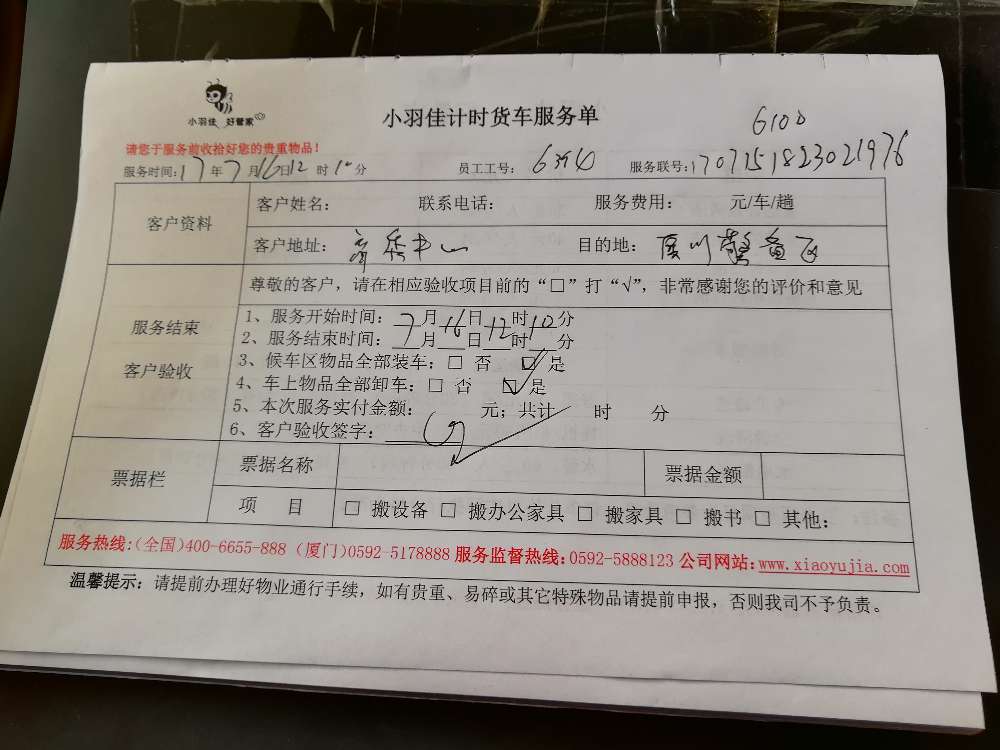 小羽佳 好管家
小羽佳计时货车服务单
6100
请您于服务前收拾好您的贵重物品！
服务时间：17年7月16日12时10分 员工工号： 服务联号：1707151823021976
客户资料
客户姓名： 联系电话： 服务费用： 元/车/趟
客户地址： 中山 目的地：
服务结束
客户验收
尊敬的客户，请在相应验收项目前的“□”打“√”，非常感谢您的评价和意见
1、服务开始时间：7月16日12时10分
2、服务结束时间：__月__日__时__分
3、候车区物品全部装车：□ 否 □ 是
4、车上物品全部卸车：□ 否 □ 是
5、本次服务实付金额： 元；共计 时 分
6、客户验收签字：
票据栏
票据名称 票据金额
项 目 □ 搬设备 □ 搬办公家具 □ 搬家具 □ 搬书 □ 其他：
服务热线：(全国)400-6655-888 (厦门)0592-5178888 服务监督热线：0592-5888123 公司网站：www.xiaoyujia.com
温馨提示：请提前办理好物业通行手续，如有贵重、易碎或其它特殊物品请提前申报，否则我司不予负责。